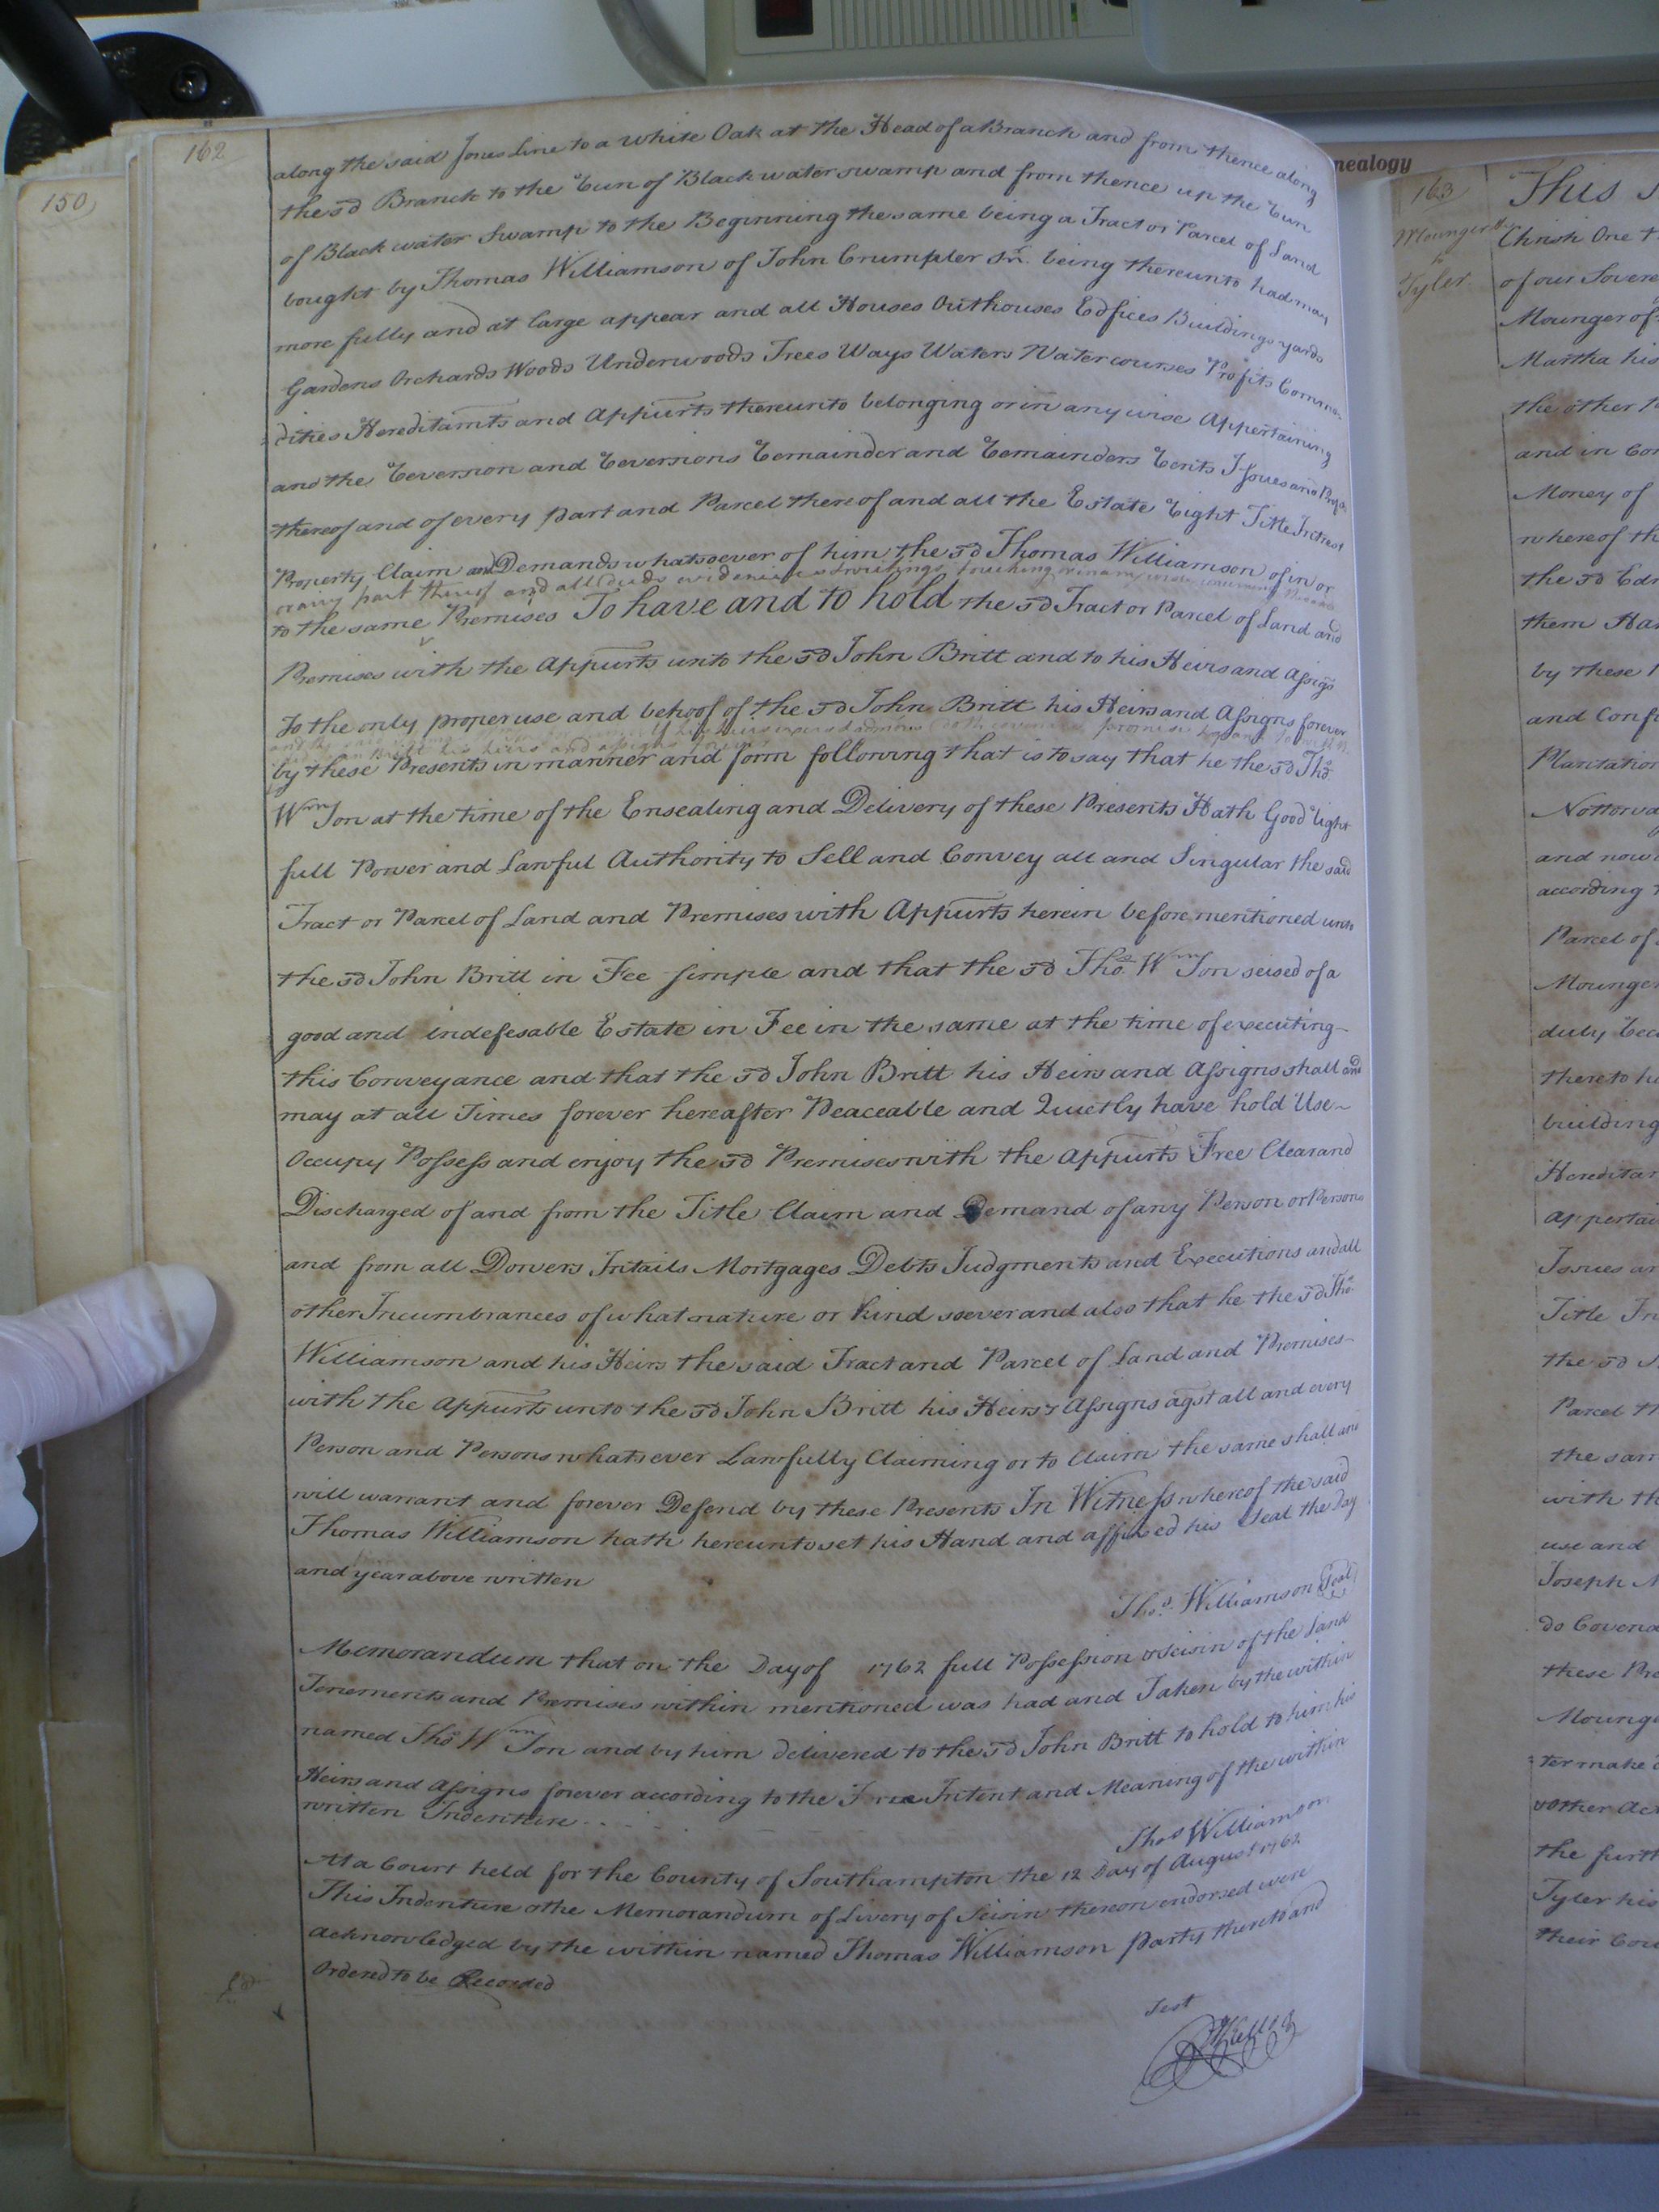 nealogy
150
162
along the said Jones Line to a white Oak at the Head of a Branch and from thence along
the sd Branch to the Run of Blackwater swamp and from thence up the Run
of Blackwater Swamp to the Beginning the same being a Tract or Parcel of Land
bought by Thomas Williamson of John Crumpler Sr. being thereunto had may
more fully and at large appear and all Houses Outhouses Edfices Buildings yards
Gardens Orchards Woods Underwoods Trees Ways Waters Watercourses Profits Commo-
dities Hereditamts and Appurts thereunto belonging or in any wise Appertaining
and the Reversion and Reversions Remainder and Remainders Rents Issues and Profs
thereof and of every part and Parcel thereof and all the Estate Right Title Intrest
Property Claim and Demands whatsoever of him the sd Thomas Williamson of in or
or any part thereof and all deeds evidences & writings touching or in any wise concerning
to the same Premises To have and to hold the sd Tract or Parcel of Land and
Premises with the Appurts unto the sd John Britt and to his Heirs and Assigs
To the only proper use and behoof of the sd John Britt his Heirs and Assigns forever
by these Presents in manner and form following that is to say that he the sd Tho
Wmson at the time of the Ensealing and Delivery of these Presents Hath Good Right
full Power and Lawful Authority to Sell and Convey all and Singular the said
Tract or Parcel of Land and Premises with Appurts herein before mentioned unto
the sd John Britt in Fee simple and that the sd Tho. Wmson seised of a
good and indefesable Estate in Fee in the same at the time of executing
this Conveyance and that the sd John Britt his Heirs and Assigns shall and
may at all Times forever hereafter Peaceable and Quietly have hold Use
Occupy Possess and enjoy the sd Premises with the Appurts Free Clear and
Discharged of and from the Title Claim and Demand of any Person or Persons
and from all Dowers Intails Mortgages Debts Judgments and Executions and all
other Incumbrances of what nature or kind soever and also that he the sd Tho.
Williamson and his Heirs the said Tract and Parcel of Land and Premises
with the Appurts unto the sd John Britt his Heirs & Assigns agst all and every
Person and Persons whatsever Lawfully Claiming or to Claim the same shall and
will warrant and forever Defend by these Presents In Witness whereof the said
Thomas Williamson hath hereunto set his Hand and affixed his Seal the Day
and year above written
Thos. Williamson Seal
Memorandum that on the Day of 1762 full Possession & Seisin of the Land
Tenements and Premises within mentioned was had and Taken by the within
named Tho Wmson and by him Delivered to the sd John Britt to hold to him his
Heirs and Assigns forever according to the True Intent and Meaning of the within
written Indenture
Thos Williamson
At a Court held for the County of Southampton the 12 Day of August 1762
This Indenture & the Memorandum of Livery of Seisin thereon endorsed were
acknowledged by the within named Thomas Williamson party thereto and
Ordered to be Recorded
Test
163
Mounger &c
to
Tyler
This
Christ One
of our Sovere
Mounger of
Martha his
the other
and in Con
Money of
whereof th
the sd Edm
them Ha
by these
and Conf
Plantation
Nottoway
and now
according
Parcel of
Mounger
duly Rec
thereto h
building
Hereditam
appertai
Issues an
Title In
the sd
Parcel th
the sam
with th
use and
Joseph M
do Covena
these Pre
Mounge
ter make
other Act
the furth
Tyler his
their Cou